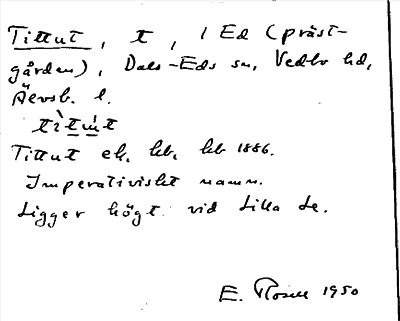 Tittut, t, / Ed (präst-
gården), Dals-Eds sn, Vedbo hd,
Älvsb. l.
tìtút
Tittut ek. kb, kb 1886.
Imperativiskt namn.
Ligger högt vid Lilla Le.
E. Rosell 1950